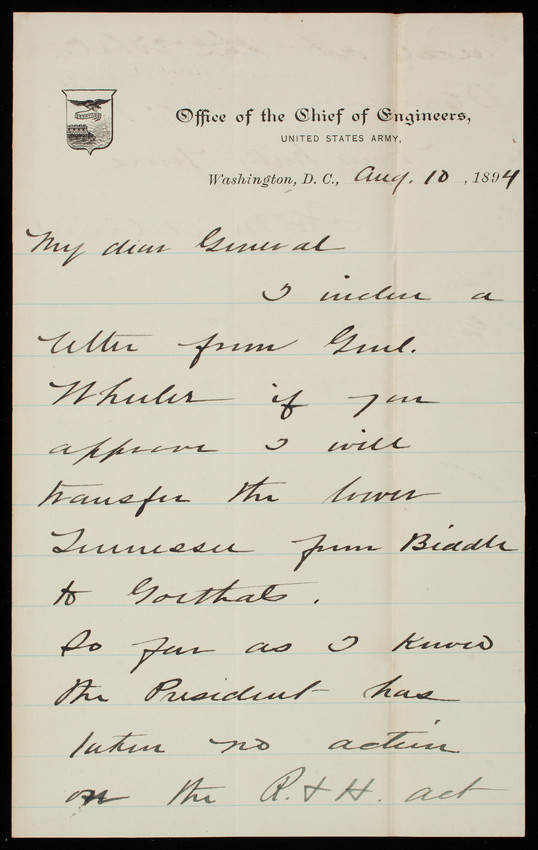 Office of the Chief of Engineers,
UNITED STATES ARMY,
Washington, D. C., Aug. 10, 1894
My dear General
I inclose a
letter from Genl.
Wheeler if you
approve I will
transfer the lower
Tennessee from Biddle
to Goethals.
So far as I know
the President has
taken no action
on the R. & H. act